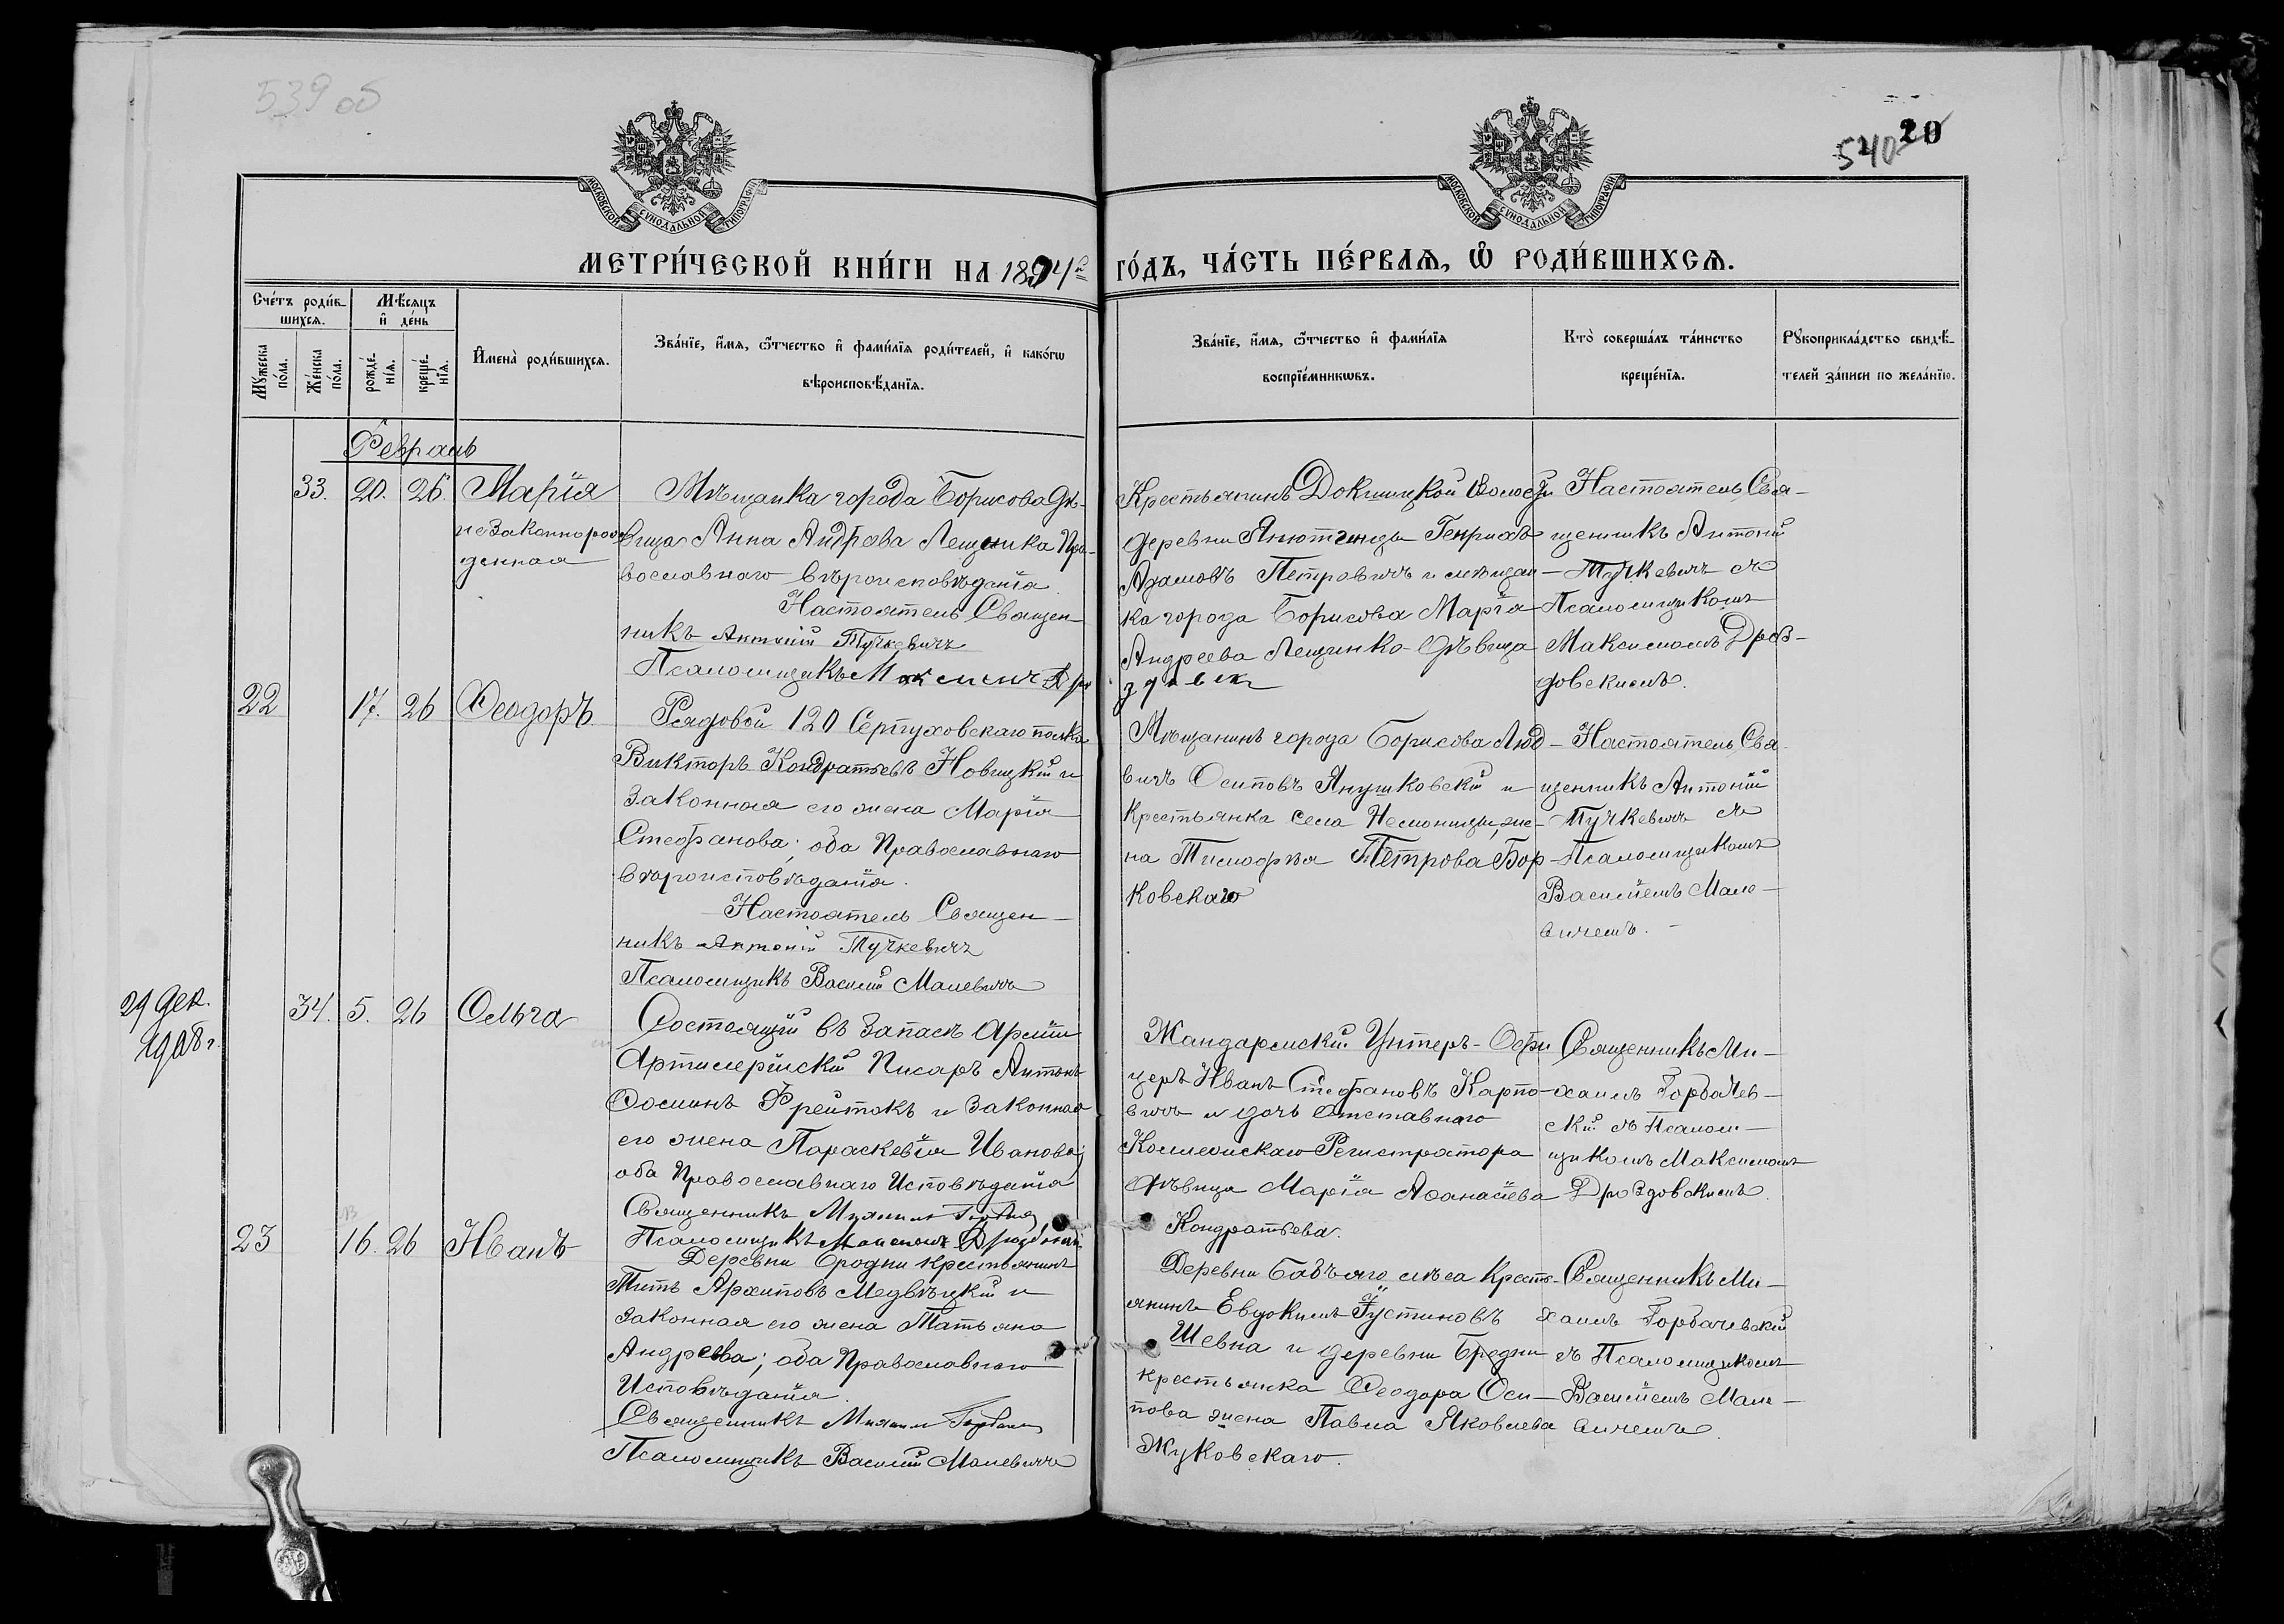 539 об
540 20
МОСКОВСКОЙ СУНОДАЛЬНОЙ ТИПОГРАФІИ
МОСКОВСКОЙ СУНОДАЛЬНОЙ ТИПОГРАФІИ
МЕТРИ́ЧЕСКОЙ КНИ́ГИ НА 1894й
ГО́ДЪ, ЧА́СТЬ ПЕ́РВАѦ, Ѡ РОДИ́ВШИХСѦ.
Сче́тъ роди́в-
шихсѧ.
Мѣ́сѧцъ
и҆ де́нь
Мꙋ́жеска
по́ла.
Же́нска
по́ла.
рожде́-
нїѧ.
креще́-
нїѧ.
И҆мена̀ роди́вшихсѧ.
Зва́нїе, и҆́мѧ, ѻ҆́тчество и҆ фами́лїѧ роди́телей, и҆ како́гѡ
вѣроисповѣ́данїѧ.
Зва́нїе, и҆́мѧ, ѻ҆́тчество и҆ фами́лїѧ
воспрїе́мникѡвъ.
Кто̀ соверша́лъ та́инство
креще́нїѧ.
Рꙋкоприкла́дство свидѣ́-
телей за́писи по жела́нїю.
Февраль
33. 20. 26. Марія
незаконнорож
денная
Мѣщанка города Борисова дѣ-
вица Анна Андрева Лещенка Пра-
вославнаго вѣроисповѣданія.
Настоятель Священ-
никъ Антоній Тучкевичъ
Псаломщикъ
Крестьянинъ Докшицкой Волости
деревни Генрихъ
Адамовъ Петровичъ и мѣщан-
ка города Борисова Марія
Андреева Лещинко дѣвица
Настоятель Свя-
щенникъ Антоній
Тучкевичъ съ
Псаломщикомъ
Максимомъ Дроз-
довскимъ.
22 17. 26 Ѳеодоръ.
Рядовой 120 Серпуховскаго полка
Викторъ Кондратьевъ Новицкій и
законная его жена Марія
Стефанова; оба Православнаго
вѣроисповѣданія.
Настоятель Священ-
никъ Антоній Тучкевичъ
Псаломщикъ Василій Малевичъ
Мѣщанинъ города Борисова Люд-
вигъ Осиповъ Янушковскій и
Крестьянка села жe-
на Тимофея Петрова Бор-
ковскаго
Настоятель Свя-
щенникъ Антоній
Тучкевичъ съ
Псаломщикомъ
Василіемъ Мале-
вичемъ.
29 Дек.
1908 г.
34. 5. 26 Ольга
Состоящій въ запасѣ Арміи
Артилерійскій Писарь Антонъ
Ѳоминъ Фрейтокъ и законная
его жена Параскевія Иванова;
оба Православнаго Исповѣданія
Священникъ Михаилъ
Псаломщикъ
Жандармскій Унтеръ-Офи
церъ Иванъ Стефановъ Карпо-
вичъ и дочь отставнаго
Коллежскаго Регистратора
дѣвица Марія Аѳанасіева
Кондратьева.
Священникъ Ми-
хаилъ Горбачев-
скій съ Псалом-
щикомъ Максимомъ
Дроздовскимъ.
23 16. 26 Иванъ
Деревни Бродни крестьянинъ
Титъ Архиповъ Медвѣцкій и
законная его жена Татьяна
Андреева; оба Православнаго
Исповѣданія.
Священникъ Михаилъ
Псаломщикъ Василій Малевичъ
Деревни Бабъяго лѣса Кресть-
янинъ Евдокимъ Іустиновъ
Шевна и деревни Бродни
крестьянка Ѳеодора Оси-
пова жена Павла Яковлева
Жуковскаго.
Священникъ Ми-
хаилъ Горбачевскій
съ Псаломщикомъ
Василіемъ Мале-
вичемъ.